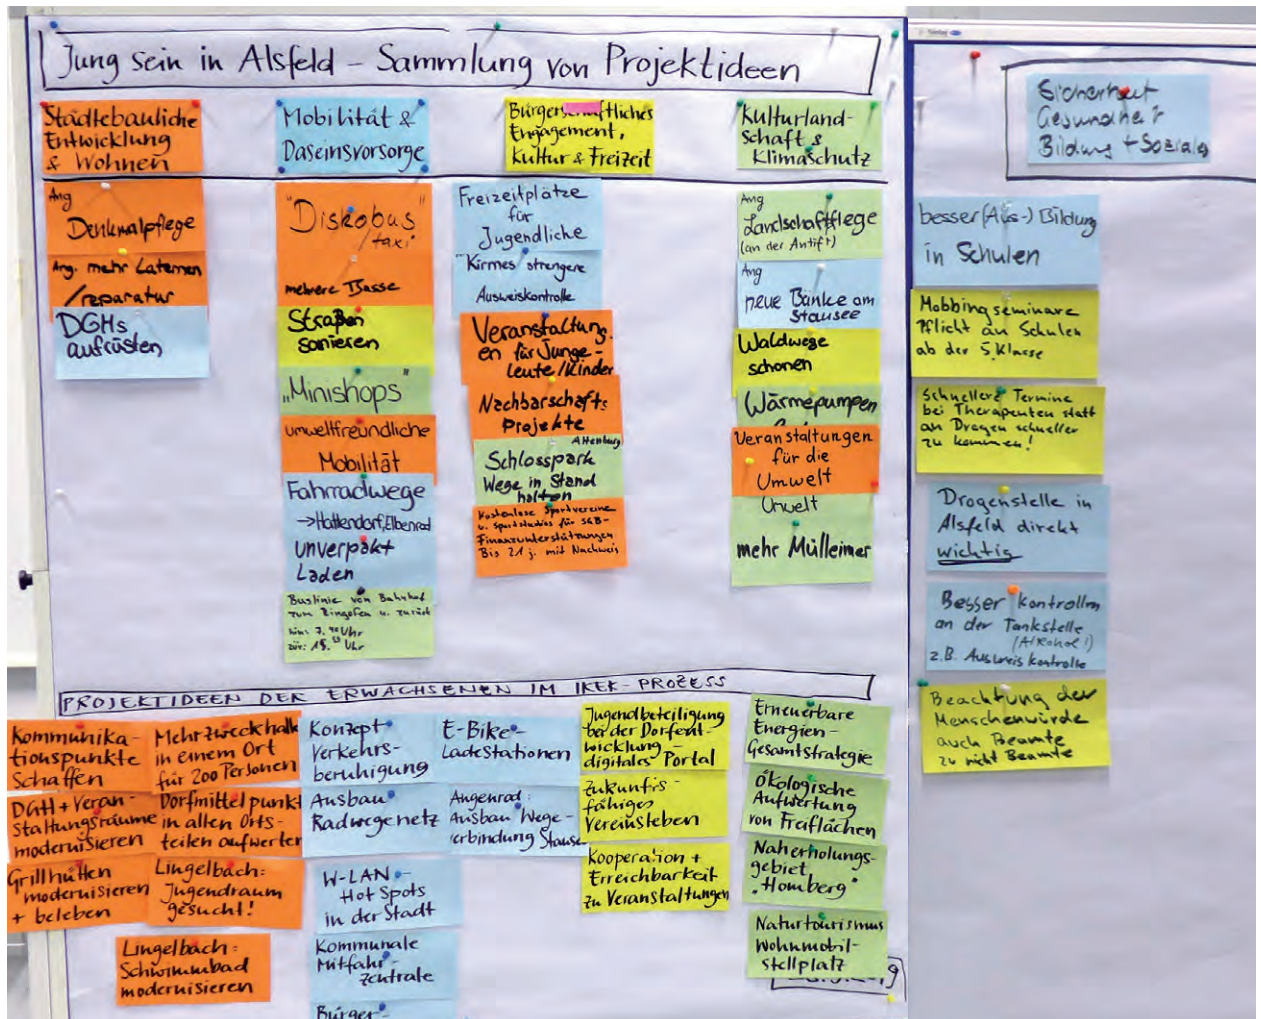 Jung sein in Alsfeld – Sammlung von Projektideen
Städtebauliche
Entwicklung
& Wohnen
Ang
Denkmalpflege
Ang. mehr Laternen
/reparatur
DGHs
aufrüsten
Mobilität &
Daseinsvorsorge
"Diskobus"
/taxi
mehrere Busse
Straßen
sanieren
„Minishops"
umweltfreundliche
Mobilität
Fahrradwege
→Hattendorf, Elbenrod
unverpakt
Laden
Buslinie von Bahnhof
zum Ringofen u. zurück
hin: 7.
zür: 15.
Uhr
Bürgerschaftliches
Engagement,
Kultur & Freizeit
Freizeitplätze
für
Jugendliche
"Kirmes strengere
Ausweiskontrolle
Veranstaltung.
en für Junge-
leute/Kinder
Nachbarschafts
Projekte
Altenburg
Schlosspark
Wege in Stand
halten
Kostenlose Sportvereine
u. Sportstudios für SGB-
Finanzunterstützungen
Bis 21 j. mit Nachweis
Kulturland-
schaft &
Klimaschutz
Ang
Landschaftflege
(an der Antift)
Ang
neue Bänke am
Stausee
Waldwege
schonen
Wärmepumpen
Veranstaltungen
für die
Umwelt
Umwelt
mehr Mülleimer
Sicherheit
Gesundheit
Bildung + Soziales
besser (Aus-) Bildung
in Schulen
Mobbingseminare
Pflicht an Schulen
ab der 5. Klasse
Schnellere Termine
bei Therapeuten statt
an Drogen schneller
zu kommen!
Drogenstelle in
Alsfeld direkt
wichtig
Besser kontrollen
an der Tankstelle
(Alkohol!)
z.B. Ausweis kontrolle
Beachtung der
Menschenwürde
auch Beamte
zu nicht Beamte
PROJEKTIDEEN DER ERWACHSENEN IM IKEK-PROZESS
Kommunika-
tionspunkte
Schaffen
DGH + Veran-
staltungsräume
modernisieren
Grillhütten
modernisieren
+ beleben
Mehrzweckhalle
in einem Ort
für 200 Personen
Dorfmittelpunkt
in allen Orts-
teilen aufwerten
Lingelbach:
Jugendraum
gesucht!
Lingelbach:
Schwimmbad
modernisieren
Konzept
Verkehrs-
beruhigung
Ausbau
Radwegenetz
W-LAN -
Hot Spots
in der Stadt
Kommunale
Mitfahr-
zentrale
Bürger-
E-Bike-
Ladestationen
Angenrod:
Ausbau Wege-
verbindung Stausee
Jugendbeteiligung
bei der Dorfent-
wicklung -
digitales Portal
Zukunfts-
fähiges
Vereinsleben
Kooperation +
Erreichbarkeit
zu Veranstaltungen
Erneuerbare
Energien-
Gesamtstrategie
Ökologische
Aufwertung
von Freiflächen
Naherholungs-
gebiet
"Homberg"
Naturtourismus
Wohnmobil-
stellplatz